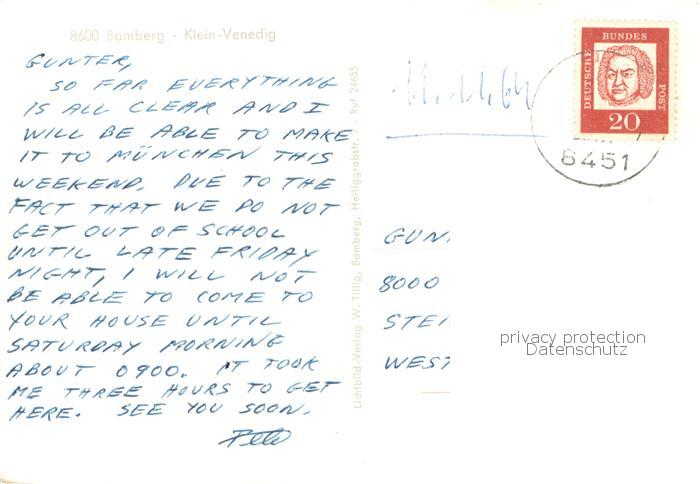 8600 Bamberg - Klein-Venedig
GUNTER,
SO FAR EVERYTHING
IS ALL CLEAR AND I
WILL BE ABLE TO MAKE
IT TO MÜNCHEN THIS
WEEKEND. DUE TO THE
FACT THAT WE DO NOT
GET OUT OF SCHOOL
UNTIL LATE FRIDAY
NIGHT, I WILL NOT
BE ABLE TO COME TO
YOUR HOUSE UNTIL
SATURDAY MORNING
ABOUT 0900. IT TOOK
ME THREE HOURS TO GET
HERE. SEE YOU SOON.
Pete
Lichtbild-Verlag W. Tillig, Bamberg, Heiliggrabstr. Ruf 24655
DEUTSCHE
BUNDES
POST
20
8451
GUN
8000
STEI
WEST
privacy protection
Datenschutz